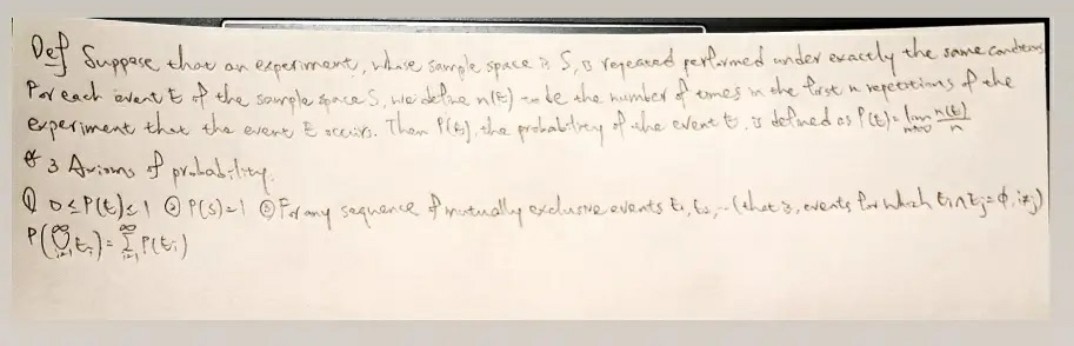 Def Suppose that an experiment, whose sample space is S, is repeated performed under exactly the same conditions
For each event E of the sample space S, we define n(E) to be the number of times in the first n repetitions of the
experiment that the event E occurs. Then P(E), the probability of the event E, is defined as P(E)= lim n→∞ n(E)/n
3 Axioms of probability.
① 0≤P(E)≤1 ② P(S)=1 ③ For any sequence of mutually exclusive events E₁, E₂, ... (that is, events for which Eᵢ∩Eⱼ=ϕ, i≠j)
P(⋃_{i=1}^{∞} Eᵢ) = ∑_{i=1}^{∞} P(Eᵢ)